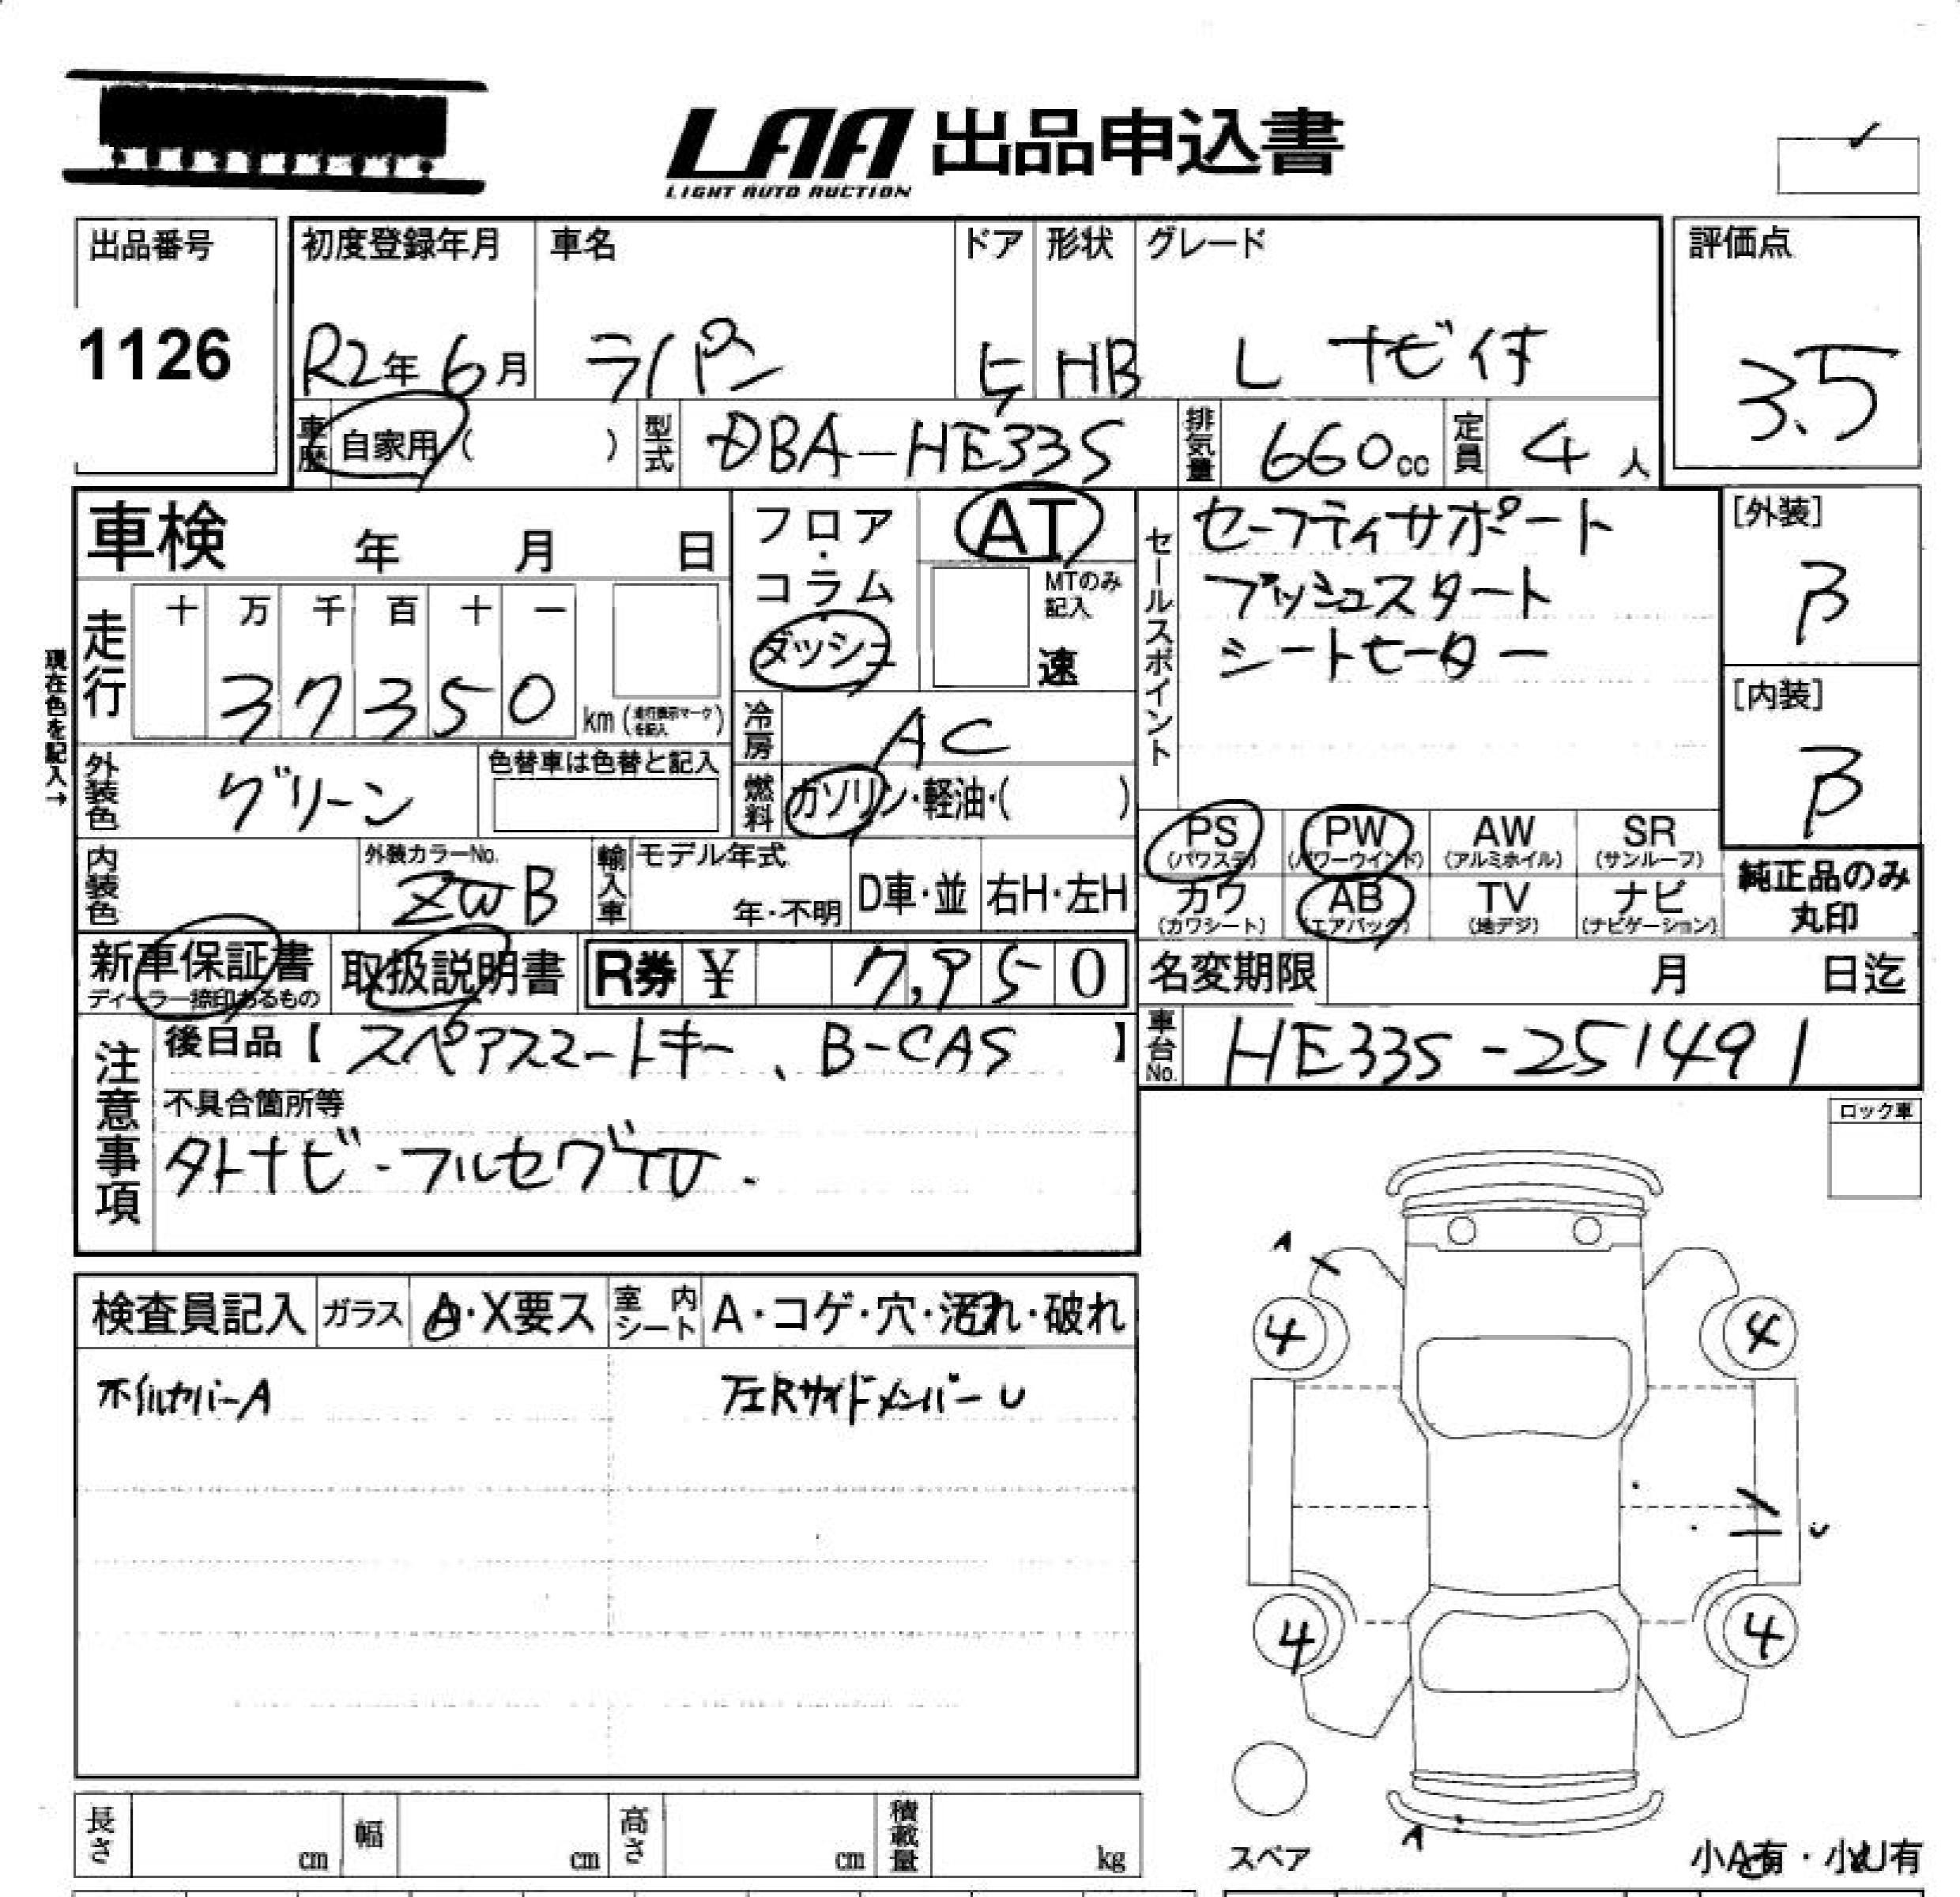 LAA 出品申込書
LIGHT AUTO AUCTION
出品番号
1126
初度登録年月
R2年6月
車名
ラパン
ドア
5
形状
HB
グレード
L ナビ付
評価点
3.5
車歴
自家用 ( )
型式
DBA-HE33S
排気量
660cc
定員
4人
車検 年 月 日
フロア・コラム
ダッシュ
AT
MTのみ記入
速
セールスポイント
セーフティサポート
プッシュスタート
シートヒーター
[外装]
B
[内装]
B
現在色を記入→
走行
十 万 千 百 十 一
37350
km (走行表示マークを記入)
冷房
AC
外装色
グリーン
色替車は色替と記入
燃料
ガソリン・軽油・( )
PS (パワステ)
PW (パワーウインド)
AW (アルミホイル)
SR (サンルーフ)
カワ (カワシート)
AB (エアバック)
TV (地デジ)
ナビ (ナビゲーション)
純正品のみ
丸印
内装色
外装カラーNo.
ZWB
輸入車
モデル年式
年・不明
D車・並
右H・左H
新車保証書
ディーラー捺印あるもの
取扱説明書
R券 ¥ 7,950
名変期限 月 日迄
注意事項
後日品【 スペアスマートキー、B-CAS 】
車台No.
HE33S-251491
不具合箇所等
外ナビ・フルセグTV.
ロック車
検査員記入
ガラス
A・X要ス
室内シート
A・コゲ・穴・汚れ・破れ
ホイルカバーA
左Rサイドメンバー U
A
4
4
U
4
4
A
スペア
小A有・小U有
長さ cm
幅 cm
高さ cm
積載量 kg